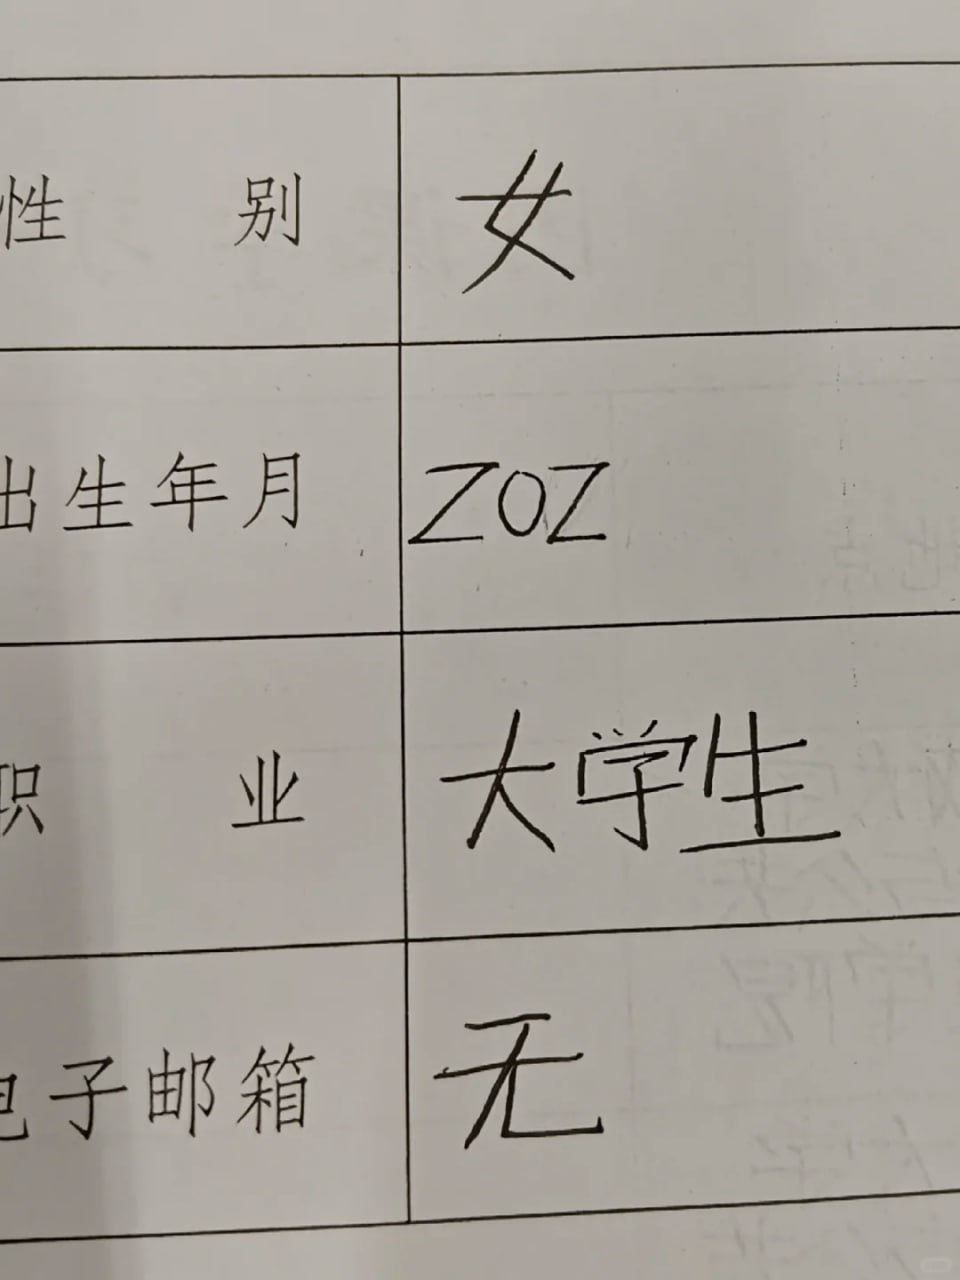 性别 女
出生年月 ZOZ
职业 大学生
电子邮箱 无